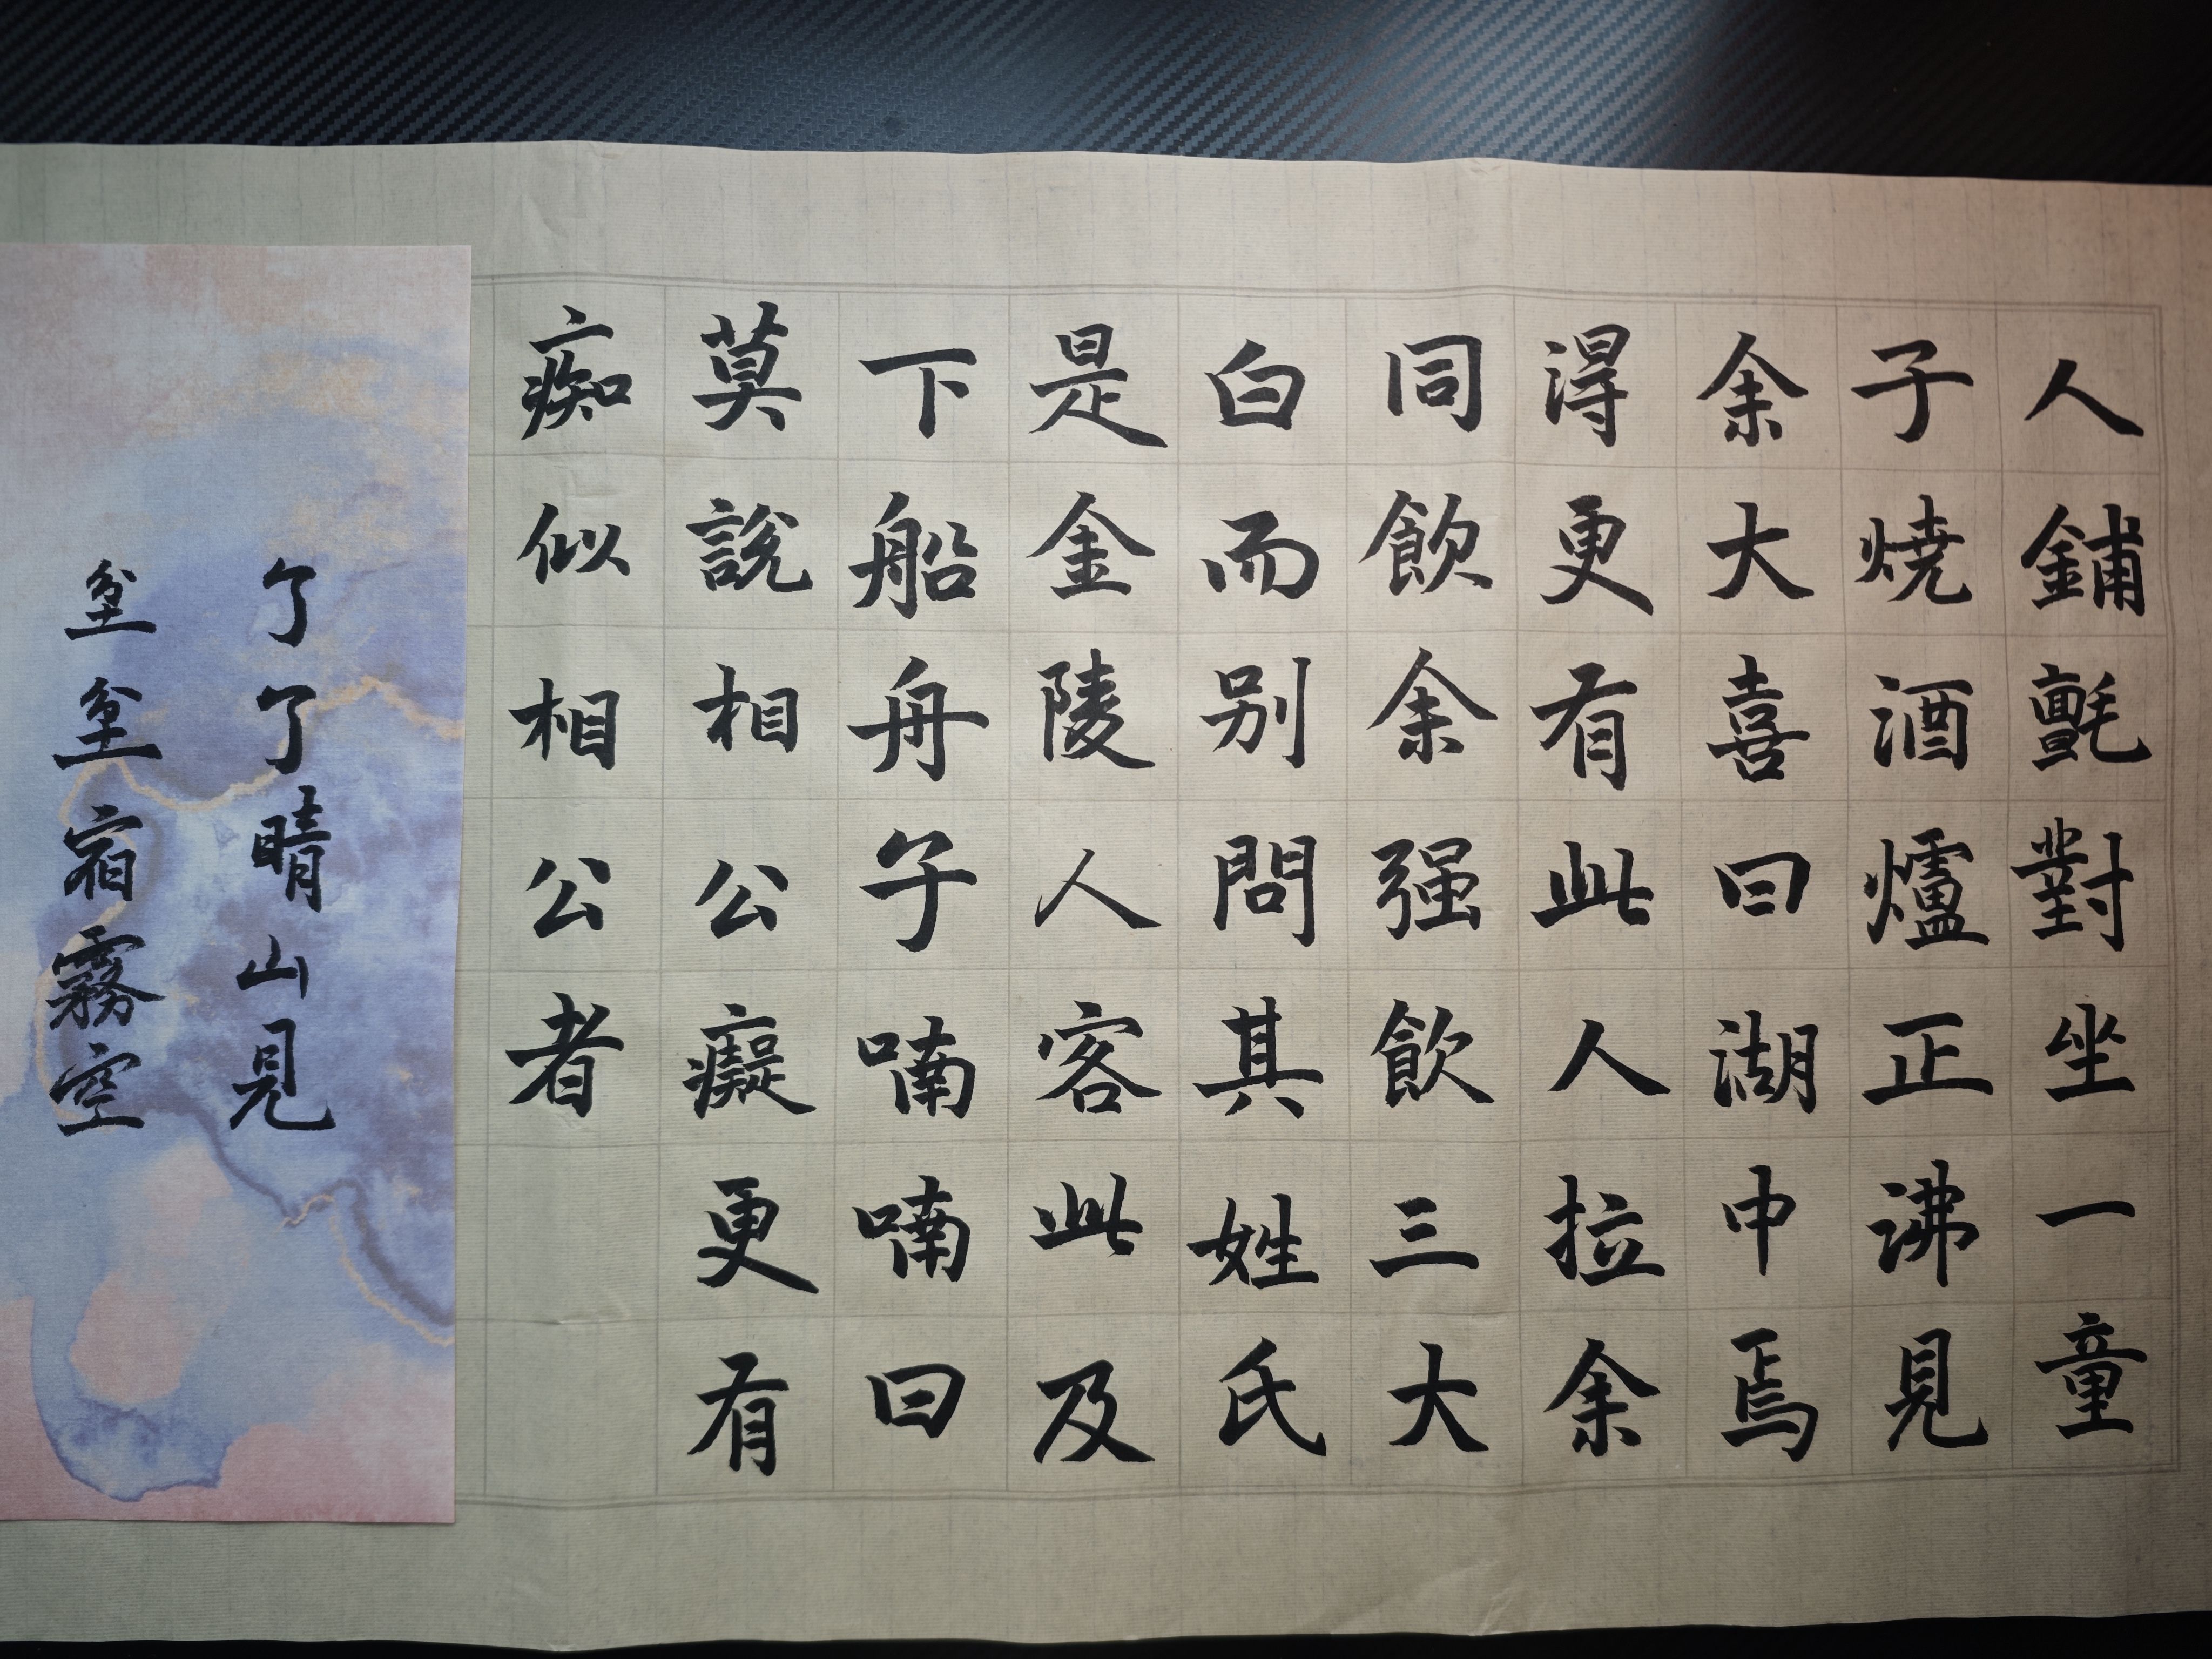 人鋪氈對坐一童
子焼酒爐正沸見
余大喜曰湖中焉
淂更有此人拉余
同飲余强飲三大
白而别問其姓氏
是金陵人客此及
下船舟子喃喃曰
莫說相公癡更有
痴似相公者
了了晴山見
坌坌宿霧空